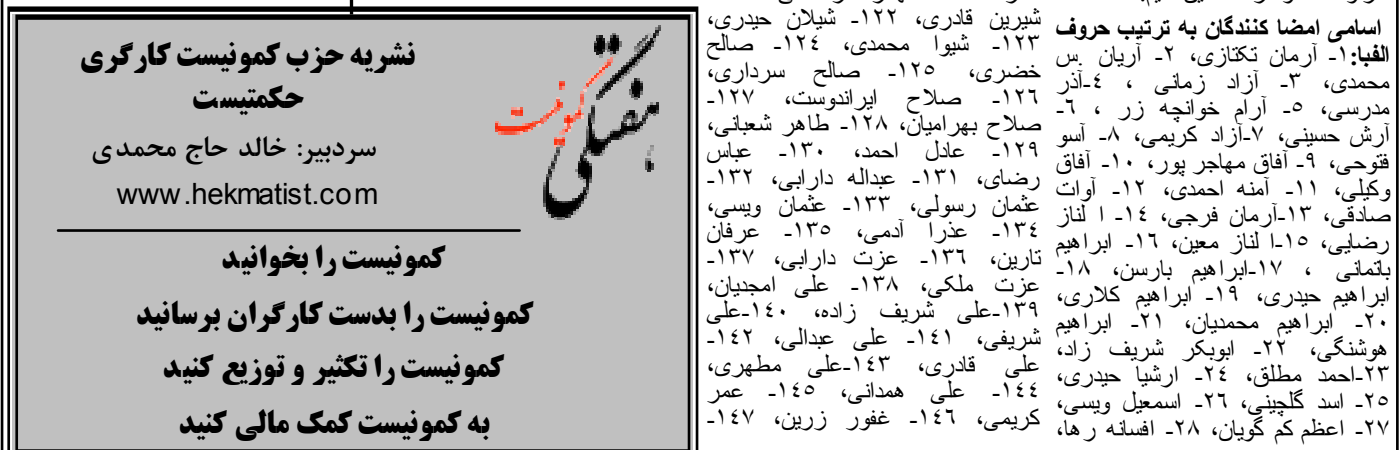 اسامی امضا کنندگان به ترتیب حروف
الفبا:١- آرمان تکتازی، ٢- آریان س
محمدی، ٣- آزاد زمانی ، ٤-آذر
مدرسی، ٥- آرام خوانچه زر ، ٦-
آرش حسینی، ٧-آزاد کریمی، ٨- آسو
فتوحی، ٩- آفاق مهاجر پور، ١٠- آفاق
وکیلی، ١١- آمنه احمدی، ١٢- آوات
صادقی، ١٣-آرمان فرجی، ١٤- ا لناز
رضایی، ١٥-ا لناز معین، ١٦- ابراهیم
باتمانی ، ١٧-ابراهیم بارسن، ١٨-
ابراهیم حیدری، ١٩- ابراهیم کلاری،
٢٠- ابراهیم محمدیان، ٢١- ابراهیم
هوشنگی، ٢٢- ابوبکر شریف زاد،
٢٣-احمد مطلق، ٢٤- ارشیا حیدری،
٢٥- اسد گلچینی، ٢٦- اسمعیل ویسی،
٢٧- اعظم کم گویان، ٢٨- افسانه رها،
شیرین قادری، ١٢٢- شیلان حیدری،
١٢٣- شیوا محمدی، ١٢٤- صالح
خضری، ١٢٥- صالح سرداری،
١٢٦- صلاح ایراندوست، ١٢٧-
صلاح بهرامیان، ١٢٨- طاهر شعبانی،
١٢٩- عادل احمد، ١٣٠- عباس
رضای، ١٣١- عبداله دارابی، ١٣٢-
عثمان رسولی، ١٣٣- عثمان ویسی،
١٣٤- عذرا آدمی، ١٣٥- عرفان
تارین، ١٣٦- عزت دارابی، ١٣٧-
عزت ملکی، ١٣٨- علی امجدیان،
١٣٩-علی شریف زاده، ١٤٠-علی
شریفی، ١٤١- علی عبدالی، ١٤٢-
علی قادری، ١٤٣-علی مطهری،
١٤٤- علی همدانی، ١٤٥- عمر
کریمی، ١٤٦- غفور زرین، ١٤٧-
کمونیست
هفتگی
نشریه حزب کمونیست کارگری
حکمتیست
سردبیر: خالد حاج محمدی
www.hekmatist.com
کمونیست را بخوانید
کمونیست را بدست کارگران برسانید
کمونیست را تکثیر و توزیع کنید
به کمونیست کمک مالی کنید